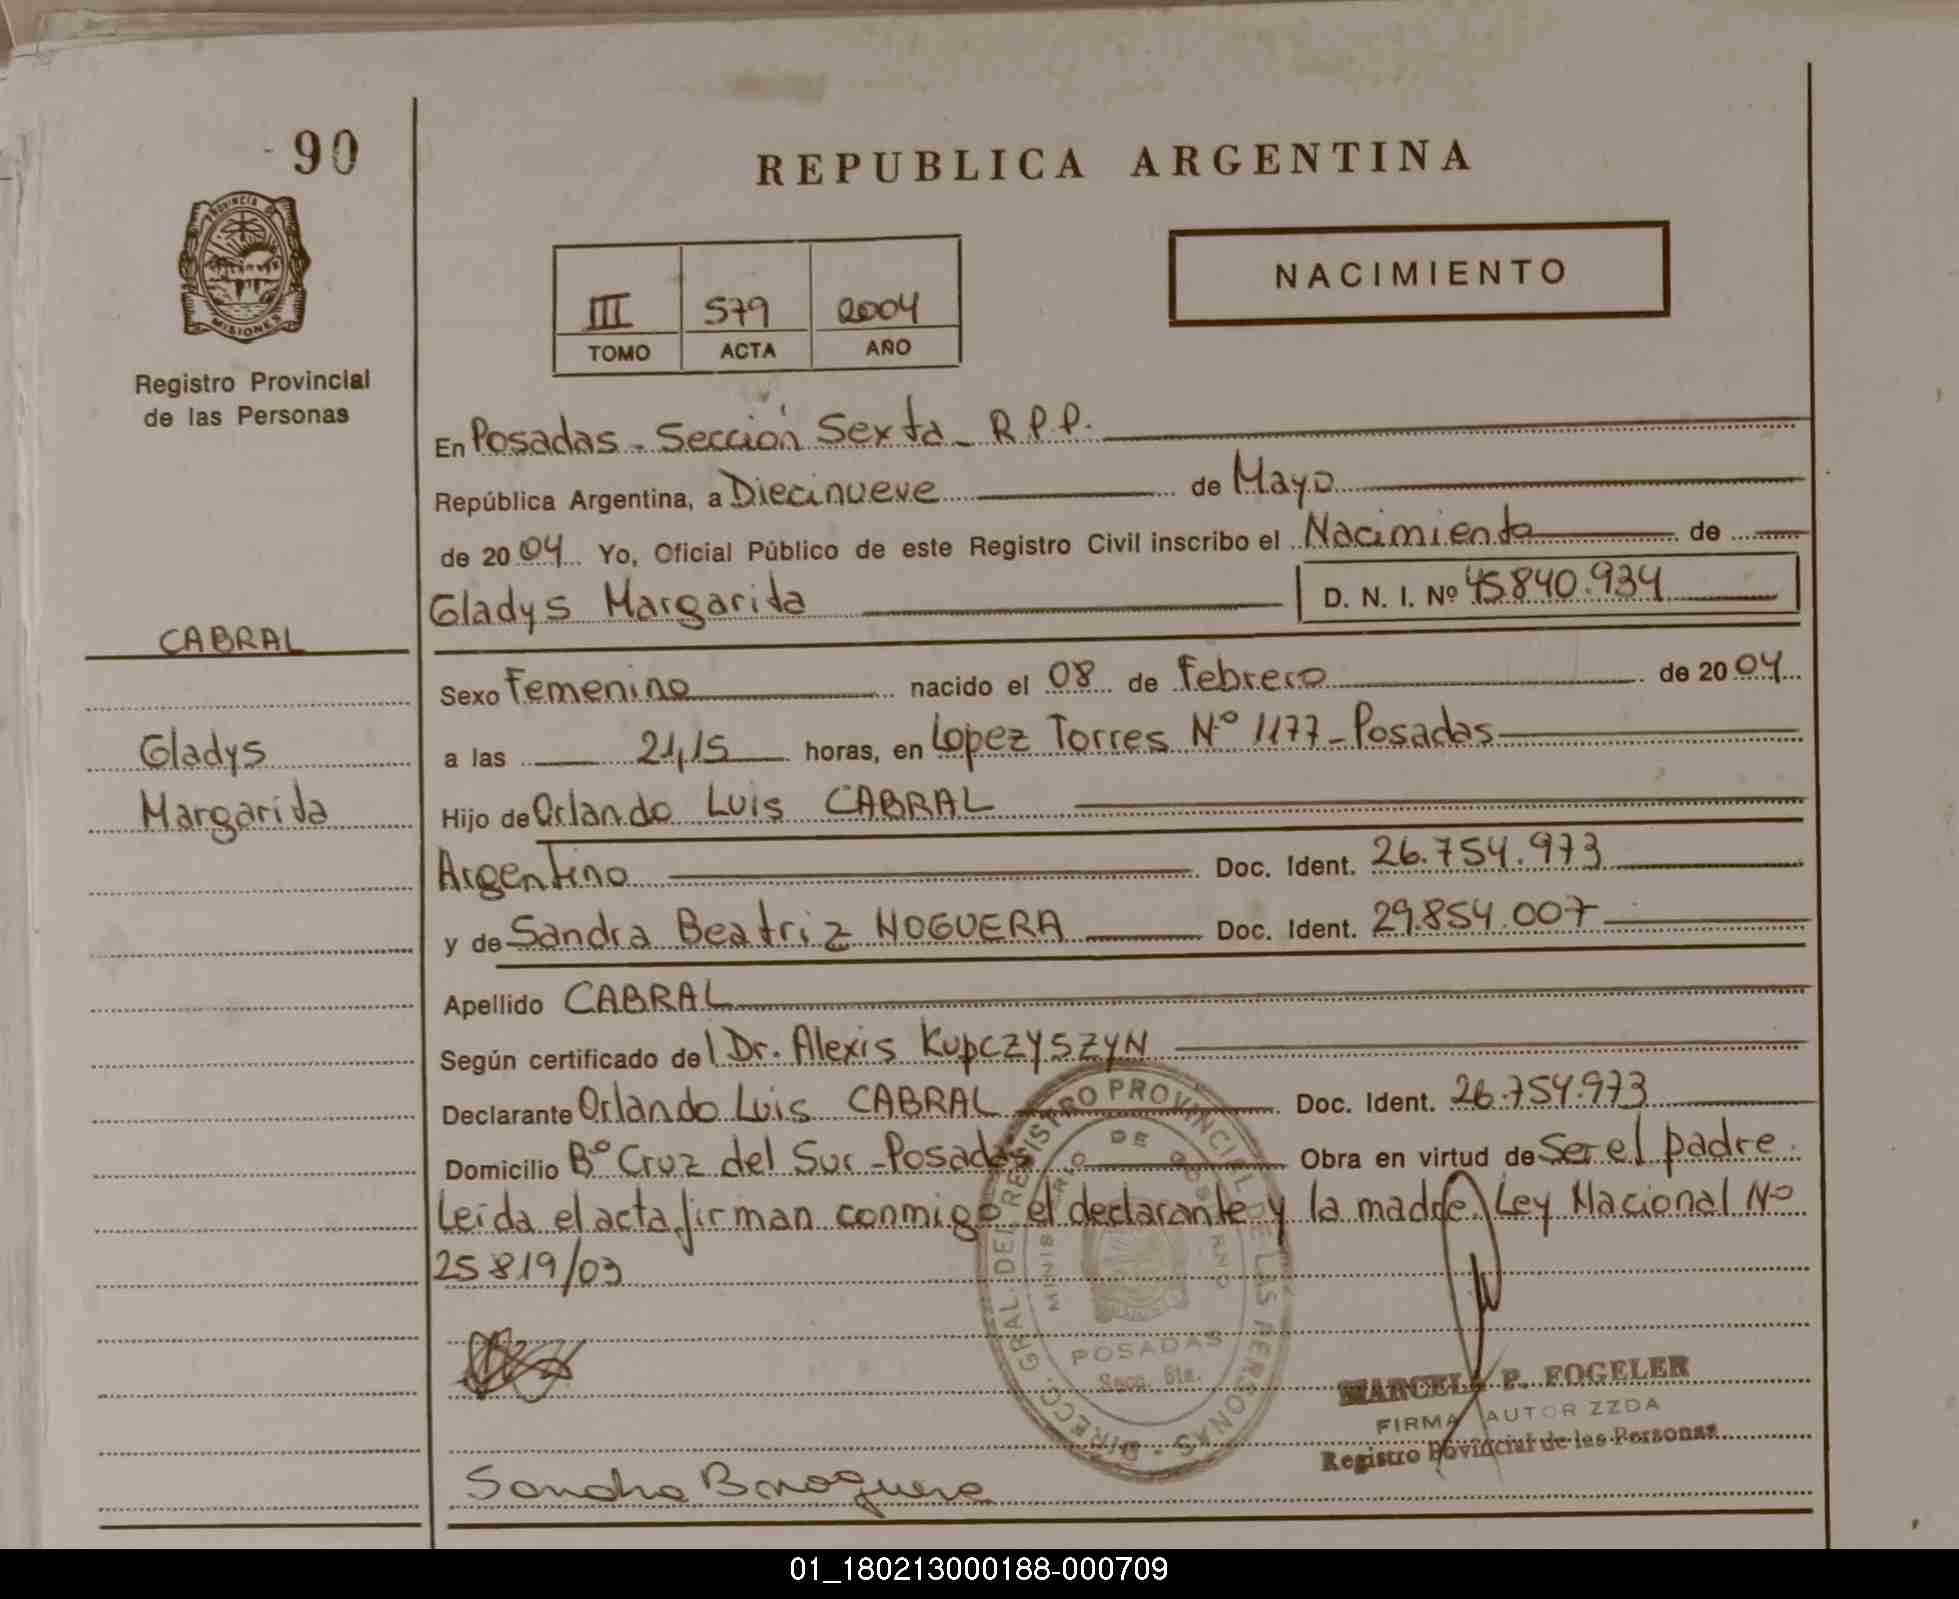 90
REPUBLICA ARGENTINA
PROVINCIA DE
MISIONES
Registro Provincial
de las Personas
III 579 2004
TOMO ACTA AÑO
NACIMIENTO
En Posadas - Sección Sexta - R.P.P.
República Argentina, a Diecinueve de Mayo
de 2004 Yo, Oficial Público de este Registro Civil inscribo el Nacimiento de
Gladys Margarita D. N. I. Nº 45.840.934
CABRAL
Gladys
Margarita
Sexo Femenino nacido el 08 de Febrero de 2004
a las 21,15 horas, en Lopez Torres Nº 1177 - Posadas
Hijo de Orlando Luis CABRAL
Argentino Doc. Ident. 26.754.973
y de Sandra Beatriz NOGUERA Doc. Ident. 29.854.007
Apellido CABRAL
Según certificado del Dr. Alexis KUPCZYSZYN
Declarante Orlando Luis CABRAL Doc. Ident. 26.754.973
Domicilio Bº Cruz del Sur - Posadas Obra en virtud de Ser el padre.
Leida el acta firman conmigo el declarante y la madre. Ley Nacional Nº
25819/03
DIRECC. GRAL. DEL REGISTRO PROVINCIAL DE LAS PERSONAS
MINISTERIO DE GOBIERNO
POSADAS
Secc. 6ta.
MARCELA P. FOGELER
FIRMA AUTORIZZDA
Registro Provincial de las Personas
Sandra B Noguera
01_180213000188-000709